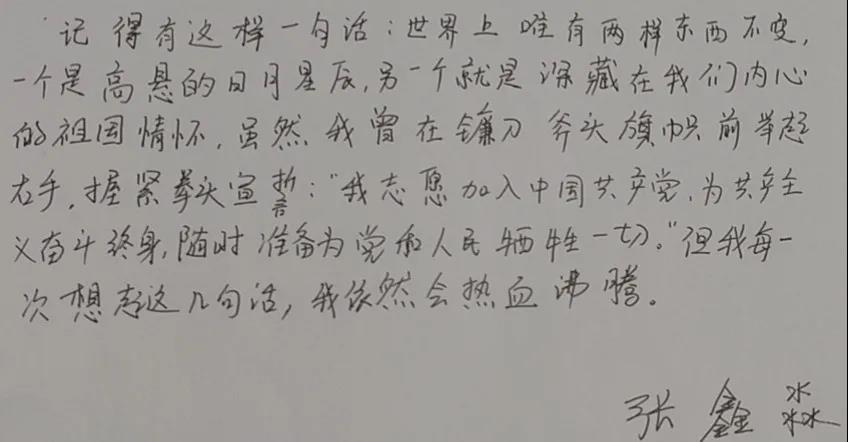 记得有这样一句话：世界上唯有两样东西不变，
一个是高悬的日月星辰，另一个就是深藏在我们内心
的祖国情怀，虽然我曾在镰刀斧头旗帜前举起
右手，握紧拳头宣誓："我志愿加入中国共产党，为共产主
义奋斗终身，随时准备为党和人民牺牲一切。"但我每一
次想起这几句话，我依然会热血沸腾。
张鑫淼